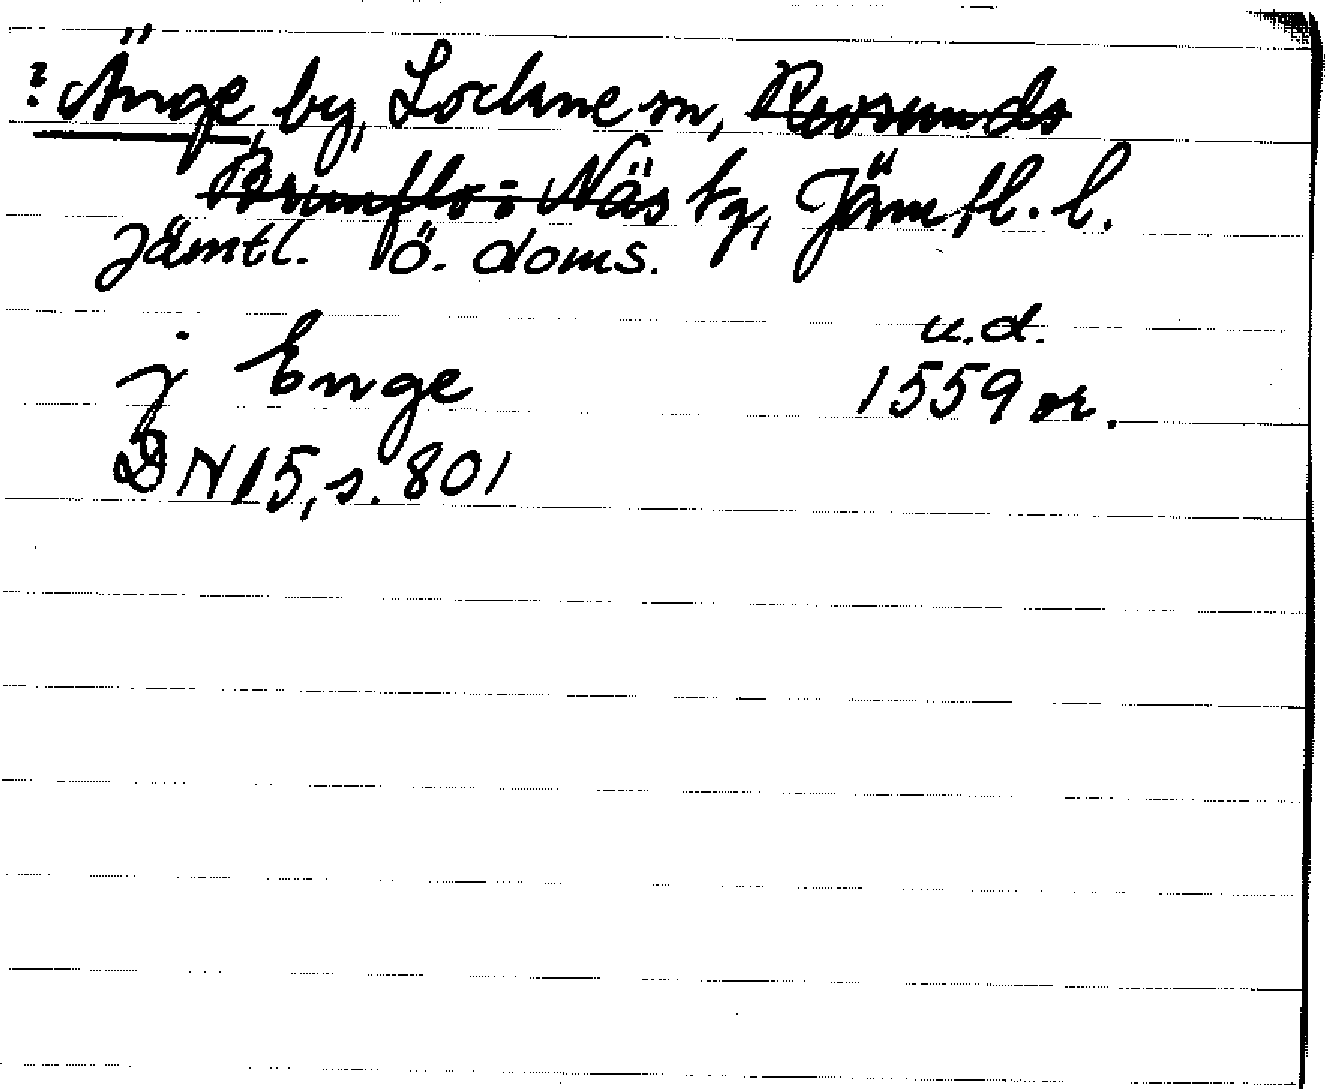 ? Änge, by, Lockne sn, Revsunds
Brunflo o Näs tg, Jämtl. l.
Jämtl. ö. doms.
u.d.
j Enge 1559 or.
DN 15, s. 801